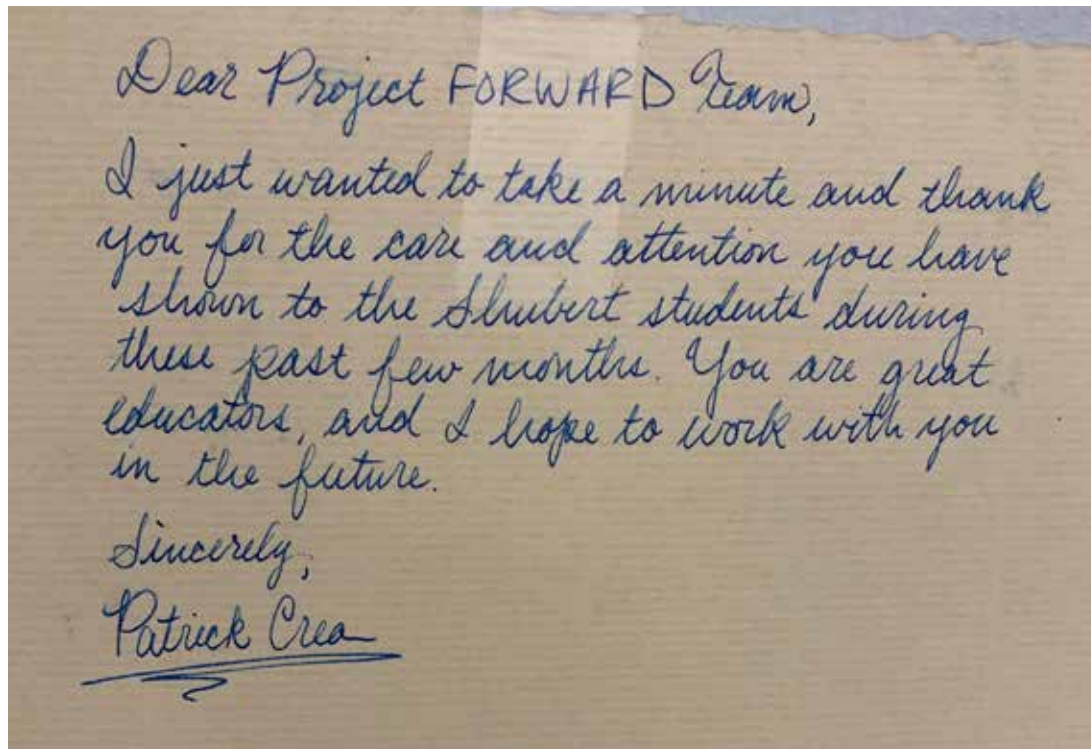 Dear Project FORWARD Team,
I just wanted to take a minute and thank
you for the care and attention you have
shown to the Shubert students during
these past few months. You are great
educators, and I hope to work with you
in the future.
Sincerely,
Patrick Crea